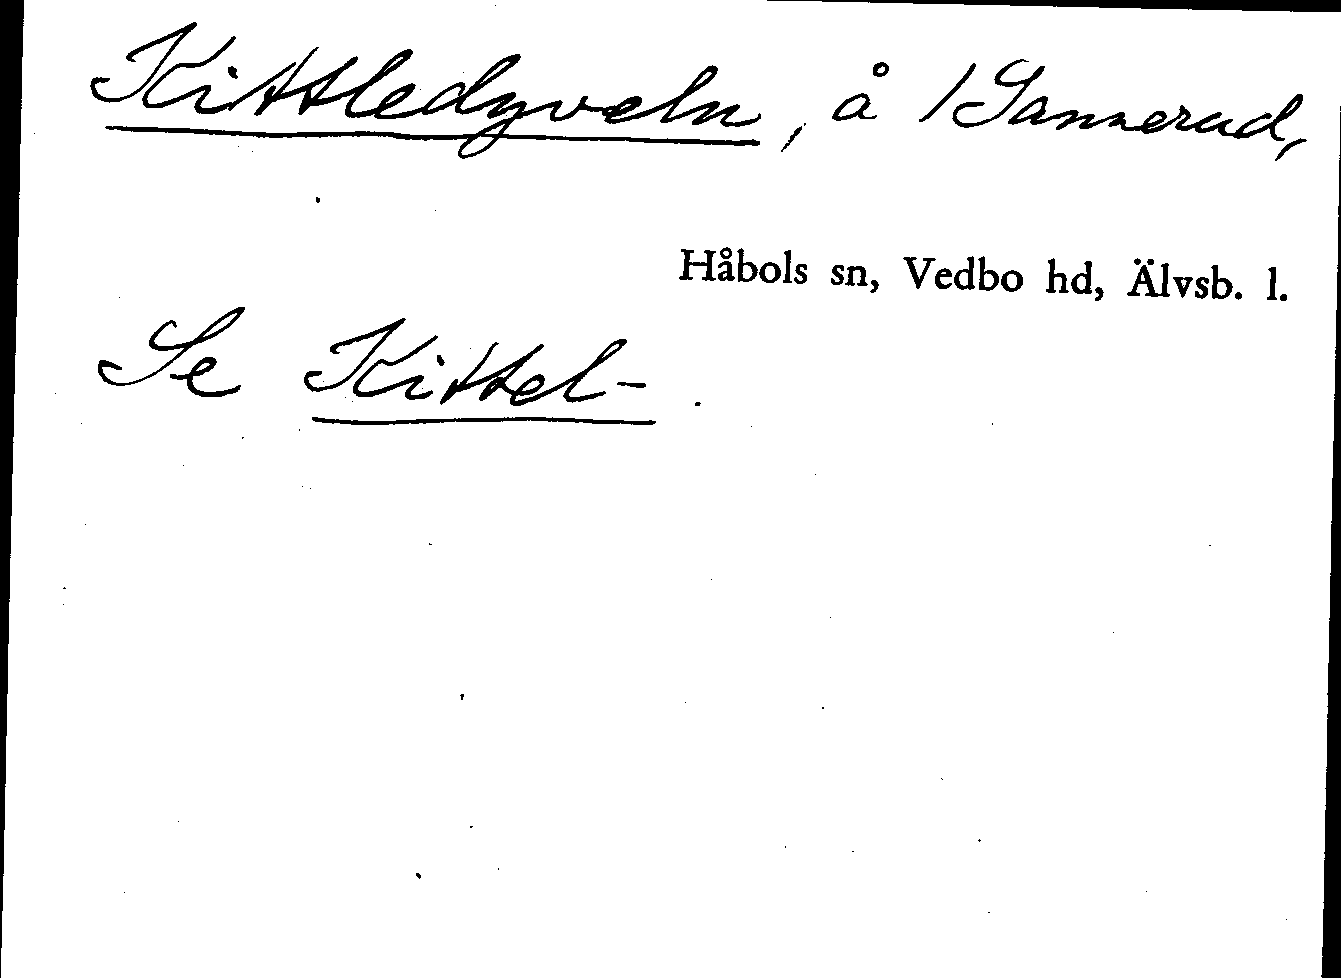 Kittledyveln, å 1 Sannerud,
Håbols sn, Vedbo hd, Älvsb. l.
Se Kittel-.